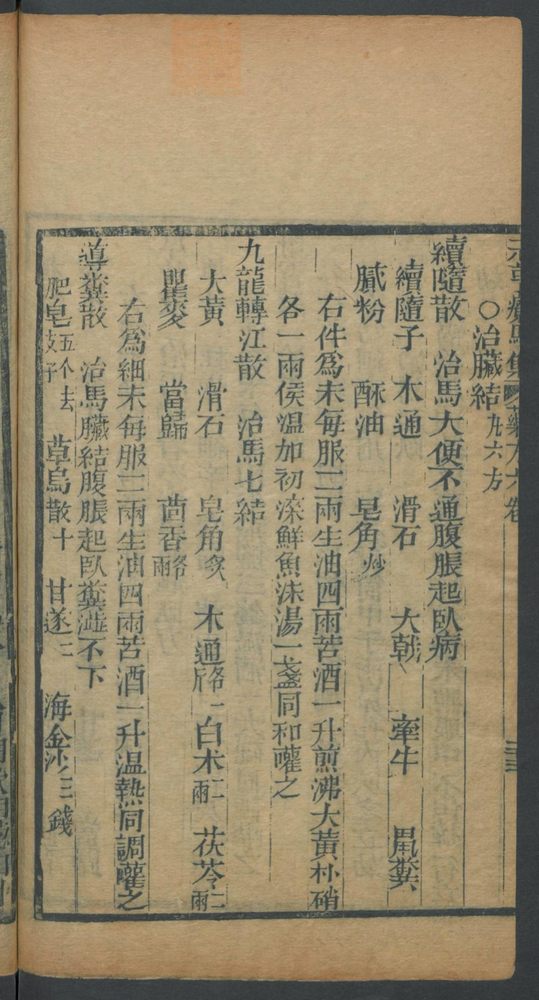 元亨療馬集 藥方 六卷
○治臟結 凡六方
續隨散 治馬大便不通腹脹起臥病
續隨子 木通 滑石 大戟 牽牛 鼠糞
膩粉 酥油 皂角炒
右件爲末每服二兩生油四兩苦酒一升煎沸大黄朴硝
各一兩候温加初滾鮮魚沫湯一盞同和嚾之
九龍轉江散 治馬七結
大黄 滑石 皂角 木通 白朮 茯苓
瞿麥 當歸 茴香
右爲細末每服二兩生油四兩苦酒一升温熱同調嚾之
導糞散 治馬臟結腹脹起臥糞澁不下
肥皂五个去 草烏散十 甘遂三 海金沙三錢